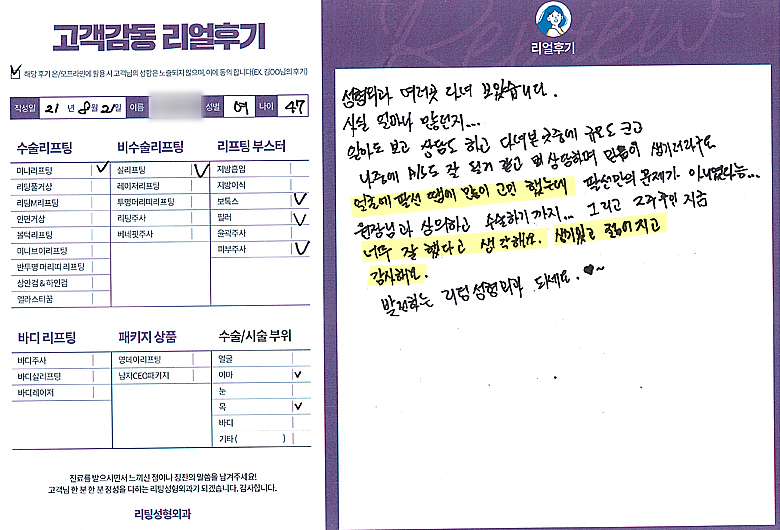 고객감동 리얼후기
해당 후기 온/오프라인에 활용 시 고객님의 성함은 노출되지 않으며, 이에 동의 합니다 (EX. 김OO님의 후기)
작성일 21년 8월 21일 이름 성별 여 나이 47
수술리프팅
미니리프팅 ✓
리팅풀거상
리팅M리프팅
안면거상
볼턱리프팅
미니브이리프팅
반투명 머리띠 리프팅
상안검 & 하안검
엘라스티꿈
비수술리프팅
실리프팅 ✓
레이저리프팅
투명머리띠리프팅
리팅주사
베네핏주사
리프팅 부스터
지방흡입
지방이식
보톡스 ✓
필러 ✓
윤곽주사
피부주사 ✓
바디 리프팅
바디주사
바디실리프팅
바디레이저
패키지 상품
영데이리프팅
남자CEO패키지
수술/시술 부위
얼굴
이마 ✓
눈
목 ✓
바디
기타 ( )
진료를 받으시면서 느끼신 점이나 칭찬의 말씀을 남겨주세요!
고객님 한 분 한 분 정성을 다하는 리팅성형외과가 되겠습니다. 감사합니다.
리팅성형외과
Review
리얼후기
성형외과 여러곳 다녀 보았습니다.
사실 얼마나 많던지...
알아도 보고 상담도 하고 다녀본 곳중에 규모도 크고
나중에 A/S도 잘 될거 같고 상담하며 믿음이 생기더라구요
얼굴에 팔선 땜에 많이 고민 했는데 팔선만의 문제가 아니었다능...
원장님과 상의하고 수술하기까지... 그리고 2주 지금
너무 잘 했다고 생각해요. 생기있고 젊어지고
감사해요.
발전하는 리팅성형외과 되세요. ♥~